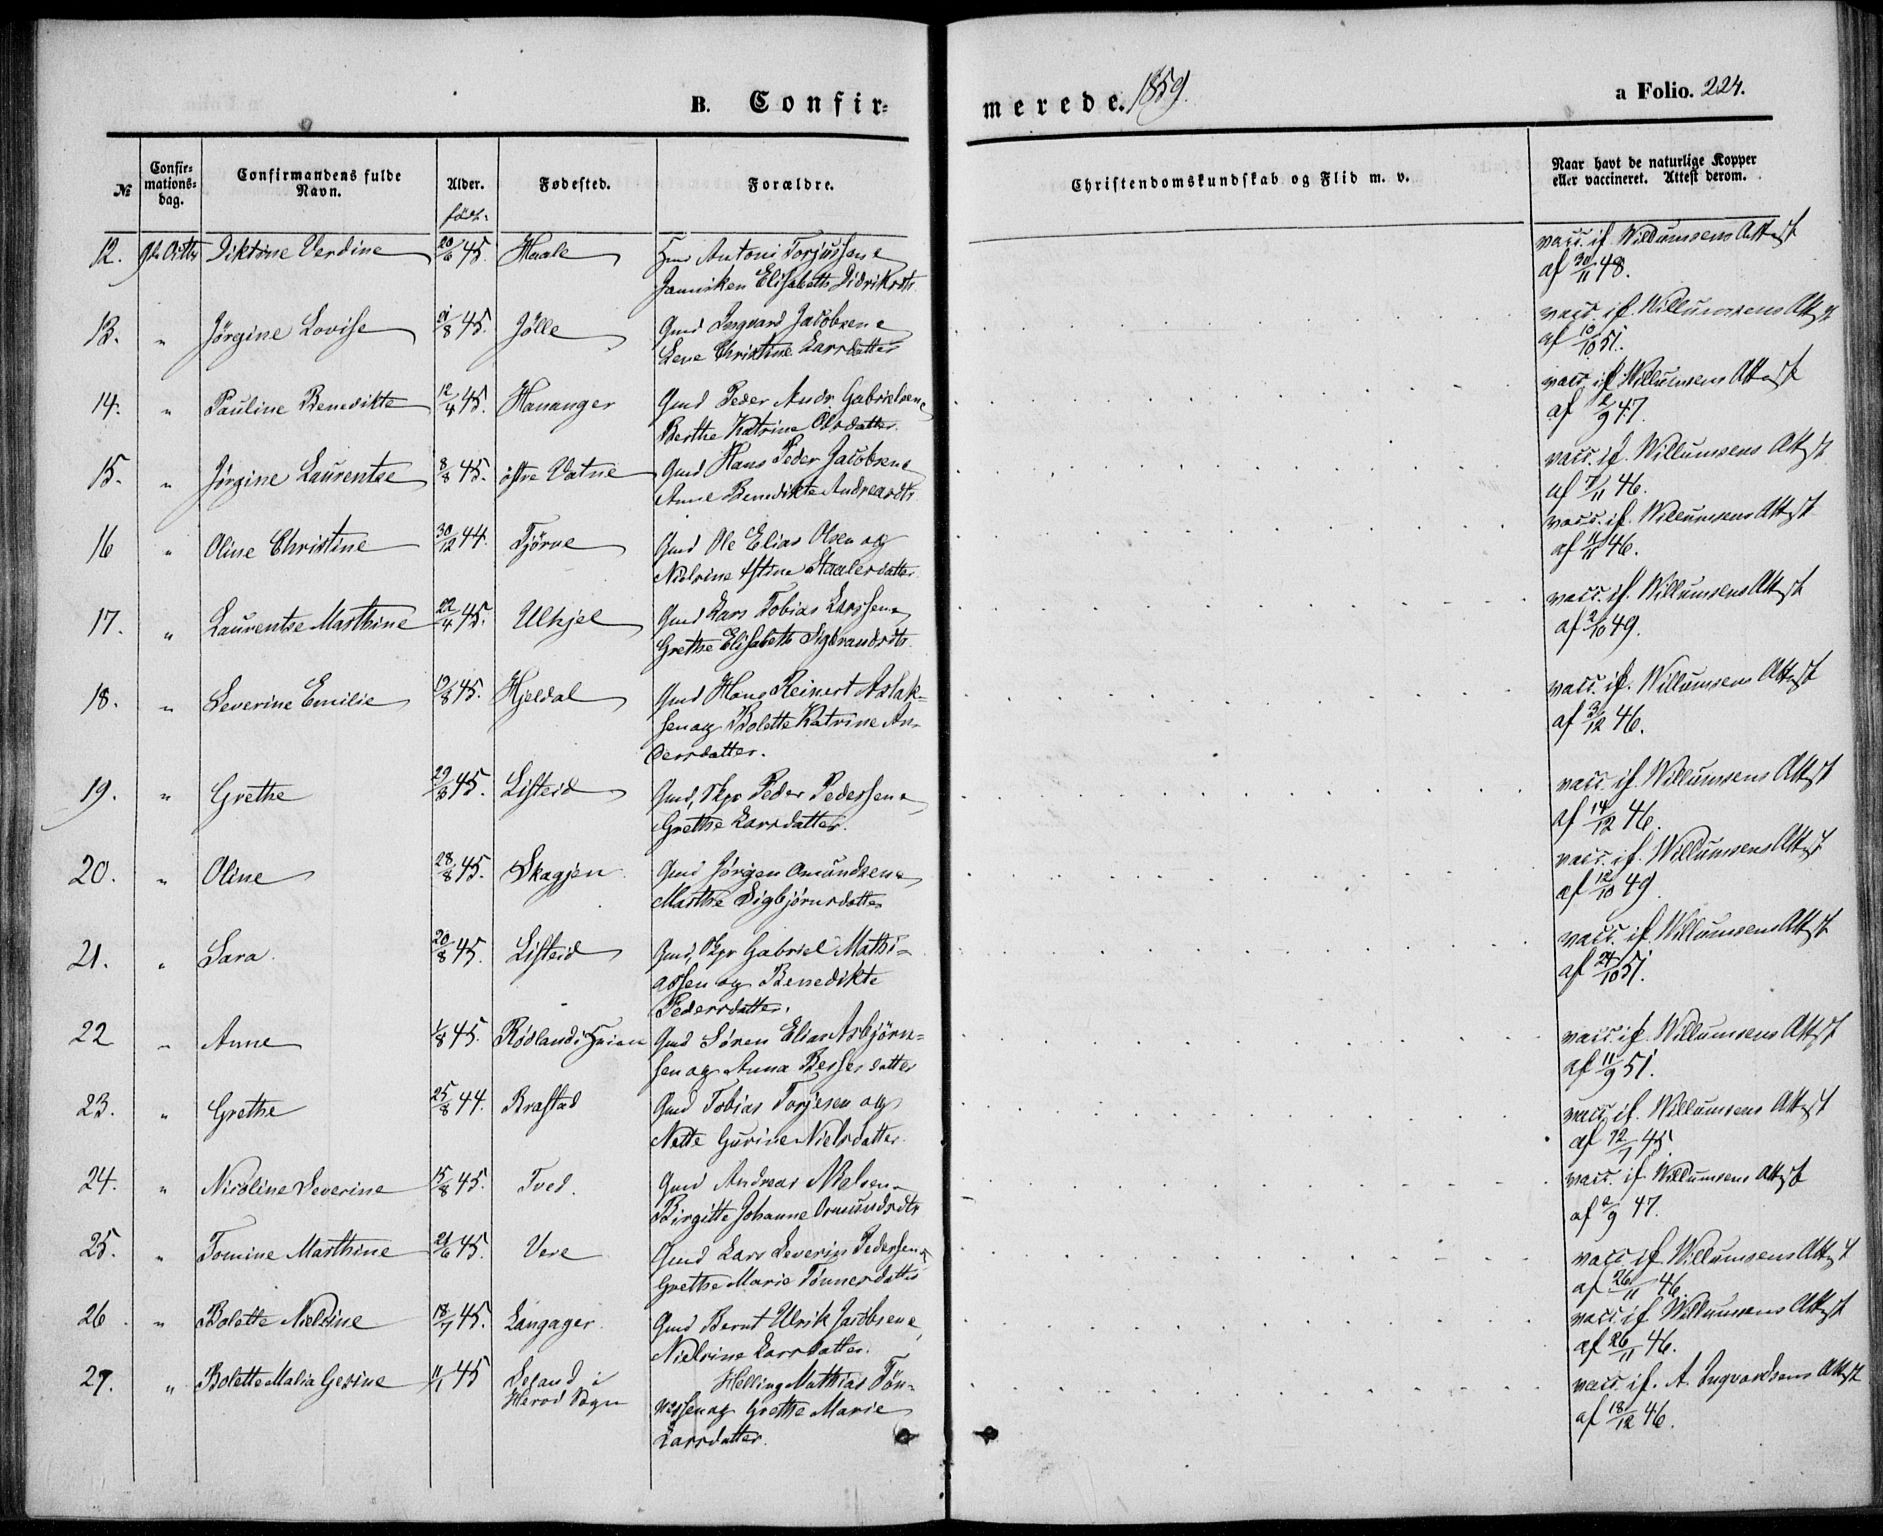 B. Confir-
merede. 1859.
a Folio. 224.
№
Confir-
mations-
dag.
Confirmandens fulde
Navn.
Alder.
Fødested.
Forældre.
Christendomskundskab og Flid m. v.
Naar havt de naturlige Kopper
eller vaccineret. Attest derom.
født.
12. Verdine 20/6 45. Haale Antoni Torjussen
Elisabeth Didriksdtr
vacc. if. Willumsens Attest
af 30/11 48.
13. " Jørgine Lovise 21/8 45. Jølle Gmd Ingvard Jacobsen
Lene Christine Larsdatter
vacc. if. Willumsens Attest
af 10/10 51.
14. " Pauline Benedikte 12/4 45. Hananger Gmd Peder Andr. Gabrielsen
Berthe Katrine Olsdatter.
vacc. if. Willumsens Attest
af 2/9 47.
15. " Jørgine Laurentse 8/8 45. østre Vatne Gmd Hans Peder Jacobsen
Anne Benedikte Andreasdtr
vacc. if. Willumsens Attest
af 7/11 46.
16 " Oline Christine 30/12 44. Tjørve Gmd Ole Elias Olsen og
Nielsine Staalesdatter
vacc. if. Willumsens Attest
af 11/11 46.
17. " Laurentse Marthine 22/4 45. Ulhjel Gmd Lars Tobias Larssen
Grethe Elisabeth Sigbrandsdtr.
vacc. if. Willumsens Attest
af 2/10 49.
18. " Severine Emilie 45. Hjeldal Gmd Hans Reinert Aslak-
sen og Bolette Katrine An-
dersdatter.
vacc. if. Willumsens Attest
af 3/12 46.
19. " Grethe 29/8 45. Listeid Gmd, Peder Pedersen
Grethe Larsdatter.
vacc. if. Willumsens Attest
af 14/12 46.
20. " Oline 28/8 45. Skagjen Gmd Jørgen Omundsen
Marthe Sigbjørnsdatter
vacc. if. Willumsens Attest
af 12/10 49
21. " Sara 20/8 45. Listeid Gmd, Gabriel Mathi-
assen og Benedikte
Pedersdatter.
vacc. if. Willumsens Attest
af 24/10 51.
22 " Anne 1/8 45. Rødlands Gmd Søren Elias Asbjørn-
sen og Anna datter
vacc. if. Willumsens Attest
af 11/9 51.
23. " Grethe 25/8 44. Brastad Gmd Tobias Torjesen og
Nette Gurine Nielsdatter.
vacc. if. Willumsens Attest
af 12/7 45.
24. " Nicoline Severine 15/8 45. Tved. Gmd Andreas
Birgitte Johanne Omundsdtr
vacc. if. Willumsens Attest
af 2/9 47.
25. " Tomine Marthine 21/6 45. Vere Gmd Lars Severin Pedersen
Grethe Marie Tønnesdatter
vacc. if. Willumsens Attest
af 26/11 46.
26. " Bolette Nielsine 18/7 45. Langager Gmd Bernt Ulrik Jacobsen
Nielsine Larsdatter.
vacc. if. Willumsens Attest
af 26/11 46.
27. " Bolette Malia Gesine 45 i
Herød Sogn Mathias Tøn-
nessen og Grethe Marie
Larsdatter.
vacc. if. A. Ingvaldsens Attest
af 18/12 46.